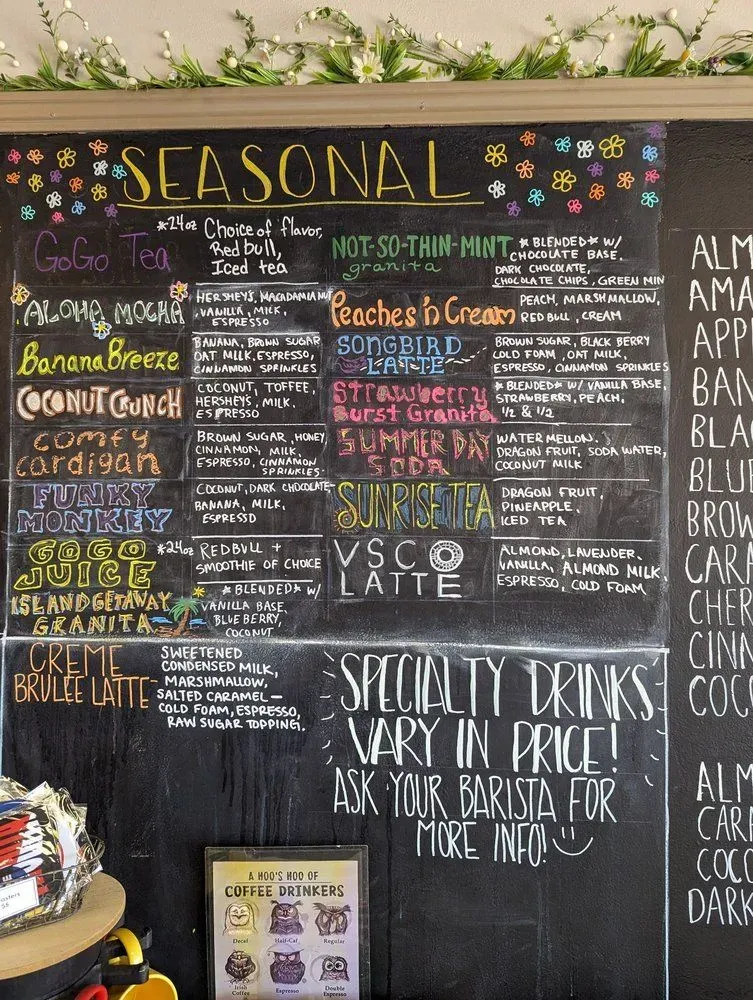 SEASONAL
GoGo Tea
*24oz Choice of flavor,
Red bull,
Iced tea
ALOHA MOCHA
HERSHEYS, MACADAMIA NUT
VANILLA, MILK,
ESPRESSO
Banana Breeze
BANANA, BROWN SUGAR
OAT MILK, ESPRESSO,
CINNAMON SPRINKLES
COCONUT CRUNCH
COCONUT, TOFFEE,
HERSHEYS, MILK,
ESPRESSO
comfy
cardigan
BROWN SUGAR, HONEY
CINNAMON, MILK,
ESPRESSO, CINNAMON
SPRINKLES
FUNKY
MONKEY
COCONUT, DARK CHOCOLATE-
BANANA, MILK,
ESPRESSO
GOGO
JUICE
*24oz REDBULL +
SMOOTHIE OF CHOICE
ISLAND GETAWAY
GRANITA
*BLENDED* W/
VANILLA BASE,
BLUEBERRY,
COCONUT
CREME
BRULEE LATTE-
SWEETENED
CONDENSED MILK,
MARSHMALLOW,
SALTED CARAMEL-
COLD FOAM, ESPRESSO,
RAW SUGAR TOPPING.
NOT-SO-THIN-MINT
granita
*BLENDED* W/
CHOCOLATE BASE,
DARK CHOCOLATE,
CHOCOLATE CHIPS, GREEN MIN
Peaches 'n Cream
PEACH, MARSHMALLOW,
RED BULL, CREAM
SONGBIRD
LATTE
BROWN SUGAR, BLACK BERRY
COLD FOAM, OAT MILK,
ESPRESSO, CINNAMON SPRINKLES
Strawberry
Burst Granita
*BLENDED* W/ VANILLA BASE
STRAWBERRY, PEACH,
1/2 & 1/2
SUMMER DAY
SODA
WATER MELLON,
DRAGON FRUIT, SODA WATER,
COCONUT MILK
SUNRISE TEA
DRAGON FRUIT,
PINEAPPLE,
ICED TEA
VSCO
LATTE
ALMOND, LAVENDER,
VANILLA, ALMOND MILK,
ESPRESSO, COLD FOAM
SPECIALTY DRINKS
VARY IN PRICE!
ASK YOUR BARISTA FOR
MORE INFO!
A HOO'S HOO OF
COFFEE DRINKERS
Decaf
Half-Caf
Regular
Irish
Coffee
Espresso
Double
Espresso
ALM
AMA
APPL
BAN
BLAC
BLUE
BROW
CARA
CHER
CINN
COCO
ALM
CARA
COCO
DARK